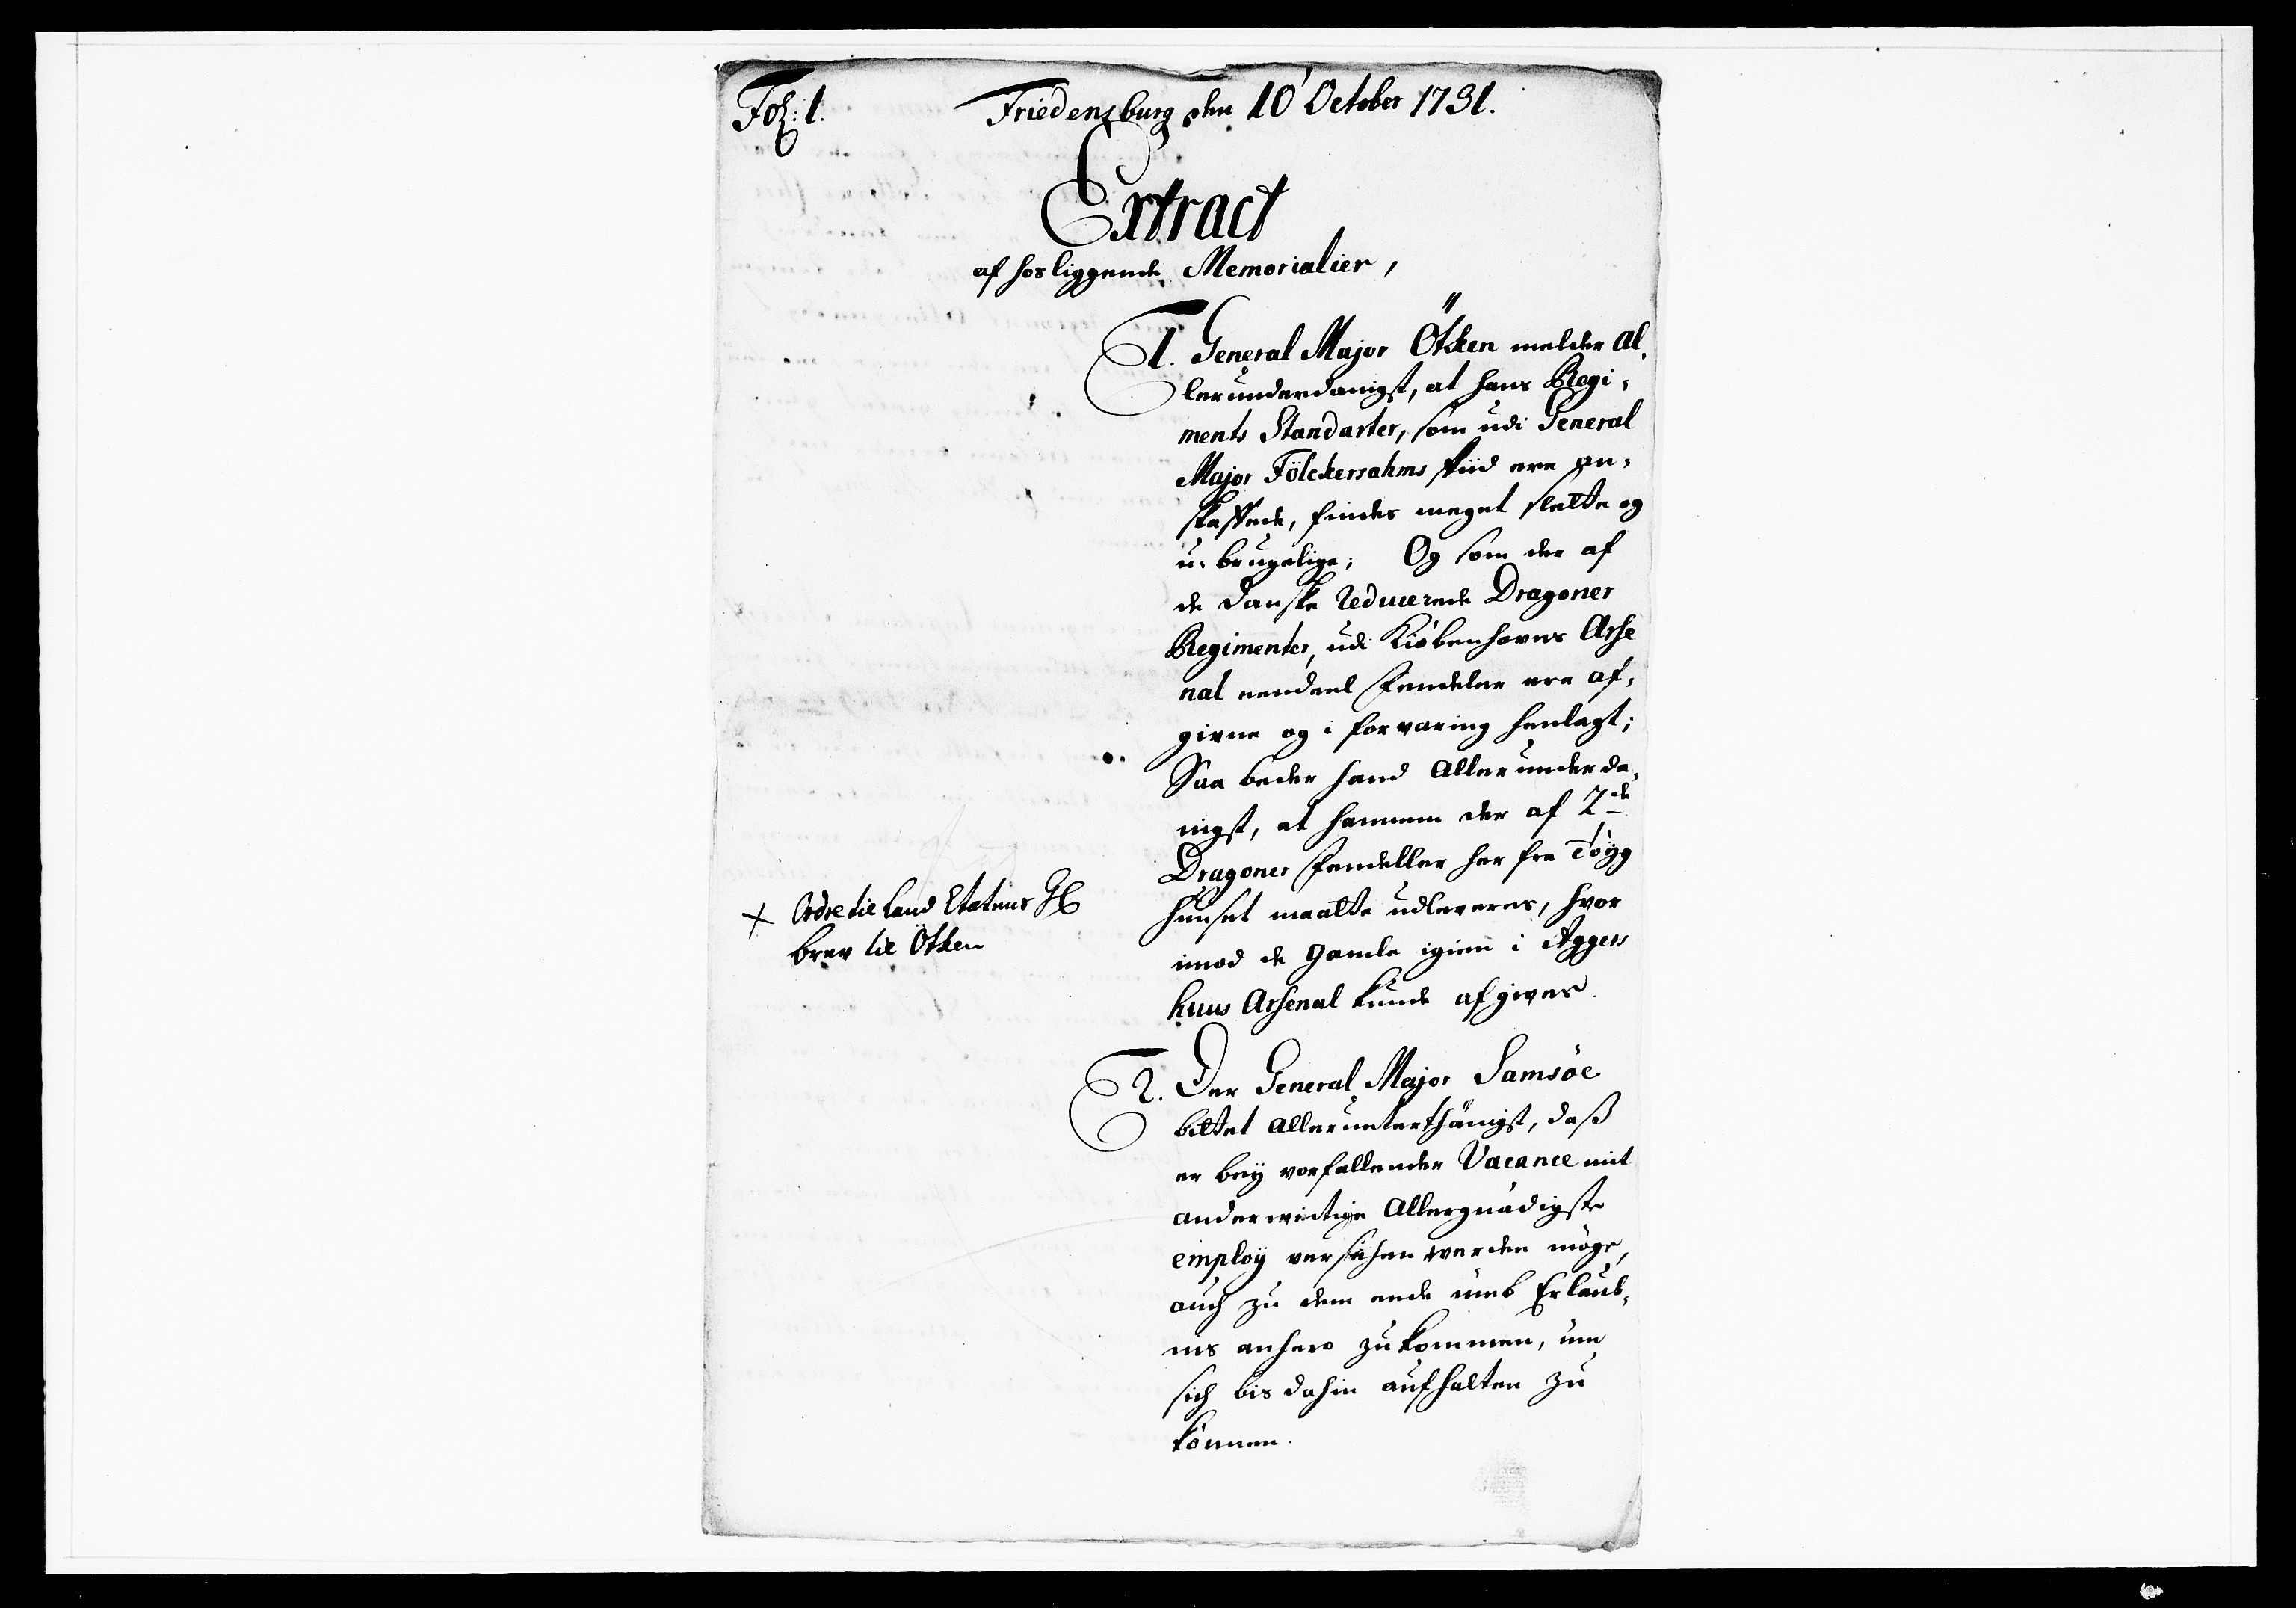 Fol: 1.
Friedensburg den 10 October 1731.
Extract
af hosliggende Memorialier,
1. General Major Ötken melder al-
lerunderdanigst, at hans Regi-
ments Standarter, som udi General
Major Fölckersahms tiid ere an-
skaffede, findes meget slette og
u-brugelige; Og som der af
de danske reducerede Dragoner
Regimenter, udi Kiöbenhavns Arse
nal eendeel Fendeler ere af-
givne og i forvaring henlagt;
Saa beder hand Allerunderda-
nigst, at hannem der af 2de
Dragoner Fendeller her fra Töyg
huuset maatte udleveres, hvor
imod de gamle igien i Aggers
huus Arsenal kunde afgives.
× Ordre til Land Etatens
brev til Ötken
2. Der General Major Samsöe
bittet allerunterthänigst, daß
er beÿ vorfallender Vacance mit
anderweitige Allergnädigste
employ versehen werden möge,
auch zu dem ende umb Erlaub-
nis anhero zu kommen, um
sich bis dahin aufhalten zu
können.